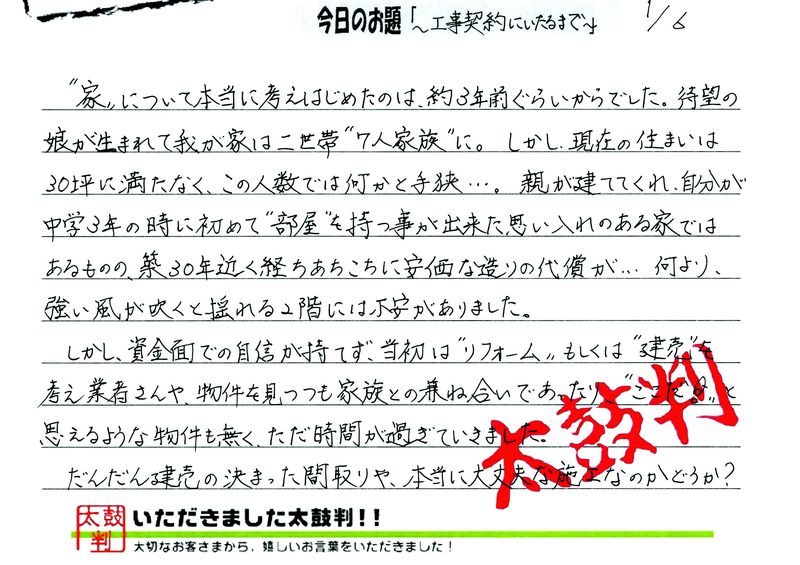 今日のお題「～工事契約にいたるまで～」 1/6
“家”について本当に考えはじめたのは、約3年前ぐらいからでした。待望の
娘が生まれて我が家は二世帯“7人家族”に。しかし、現在の住まいは
30坪に満たなく、この人数では何かと手狭…。親が建ててくれ、自分が
中学3年の時に初めて“部屋”を持つ事が出来た思い入れのある家では
あるものの、築30年近く経ちあちこちに安価な造りの代償が…何より、
強い風が吹くと揺れる2階には不安がありました。
しかし、資金面での自信が持てず、当初は“リフォーム”もしくは“建売”を
考え業者さんや、物件を見つつも家族との兼ね合いであったり、“ここだ！”と
思えるような物件も無く、ただ時間が過ぎていきました。
だんだん建売の決まった間取りや、本当に大丈夫な施工なのかどうか？
太鼓判
太鼓判
いただきました太鼓判!!
大切なお客さまから、嬉しいお言葉をいただきました！